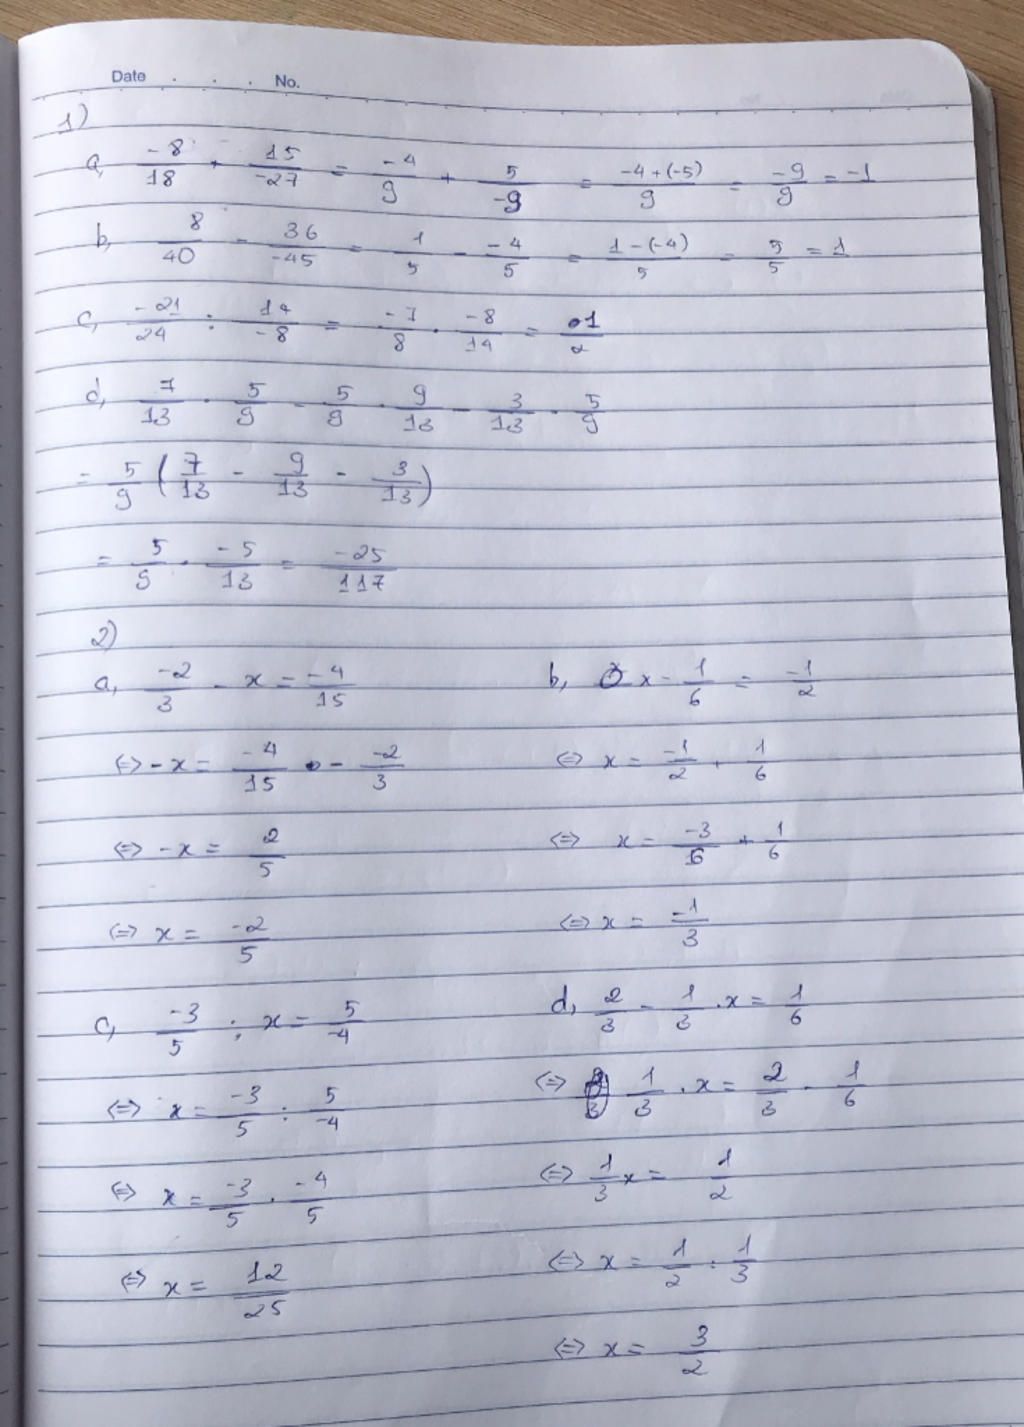 Date . . . No.
1)
a, -8/18 + 15/-27 = -4/9 + 5/-9 = -4+(-5)/9 = -9/9 = -1
b, 8/40 - 36/-45 = 1/5 - -4/5 = 1-(-4)/5 = 5/5 = 1
c, -21/24 : 14/-8 = -7/8 . -8/14 = 1/2
d, 7/13 . 5/9 - 5/9 . 9/13 - 3/13 . 5/9
= 5/9 (7/13 - 9/13 - 3/13)
= 5/9 . -5/13 = -25/117
2)
a, -2/3 - x = -4/15
⇔ -x = -4/15 - -2/3
⇔ -x = 2/5
⇔ x = -2/5
b, x - 1/6 = -1/2
⇔ x = -1/2 + 1/6
⇔ x = -3/6 + 1/6
⇔ x = -1/3
c, -3/5 : x = 5/-4
⇔ x = -3/5 : 5/-4
⇔ x = -3/5 . -4/5
⇔ x = 12/25
d, 2/3 - 1/3 . x = 1/6
⇔ 1/3 . x = 2/3 - 1/6
⇔ 1/3 x = 1/2
⇔ x = 1/2 : 1/3
⇔ x = 3/2